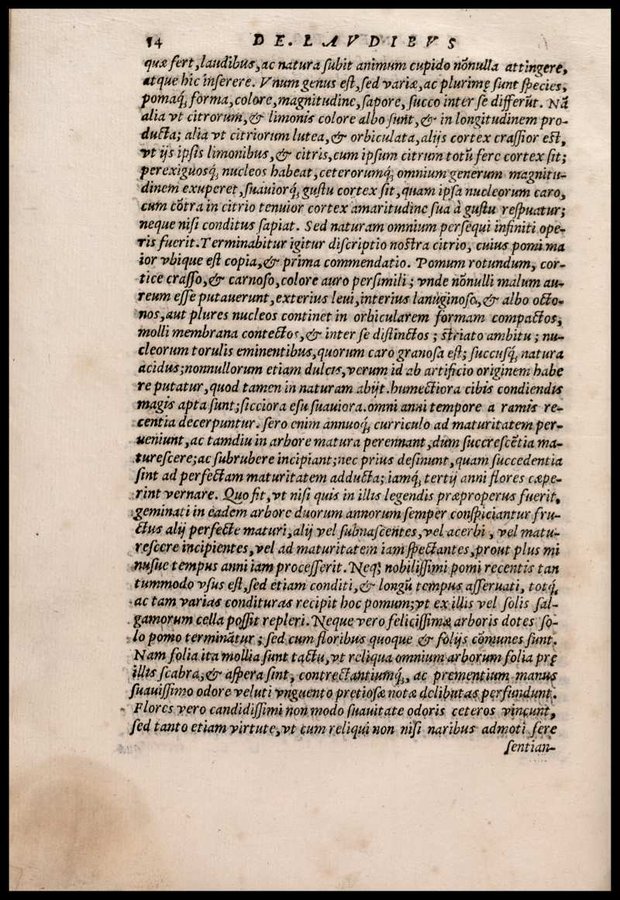 14 DE. LAVDIBVS
quæ fert, laudibus, ac natura subit animum cupido nōnulla attingere,
atque hic inserere. Vnum genus est, sed variæ, ac plurimę sunt species,
pomaq́; forma, colore, magnitudine, sapore, succo inter se differūt. Nā
alia vt citrorum, & limonis colore albo sunt, & in longitudinem pro-
ducta; alia vt citriorum lutea, & orbiculata, alijs cortex crassior est,
vt ijs ipsis limonibus, & citris, cum ipsum citrum totū fere cortex sit;
perexiguosq́; nucleos habeat, ceterorumq́; omnium generum magnitu-
dinem exuperet, suauiorq́; gustu cortex sit, quam ipsa nucleorum caro,
cum cōtra in citrio tenuior cortex amaritudine sua à gustu respuatur;
neque nisi conditus sapiat. Sed naturam omnium persequi infiniti ope-
ris fuerit. Terminabitur igitur discriptio nostra citrio, cuius pomi ma
ior vbique est copia, & prima commendatio. Pomum rotundum, cor-
tice crasso, & carnoso, colore auro persimili; vnde nōnulli malum au-
reum esse putauerunt, exterius leui, interius lanuginoso, & albo octo-
nos, aut plures nucleos continet in orbicularem formam compactos,
molli membrana contectos, & inter se distinctos; striato ambitu; nu-
cleorum torulis eminentibus, quorum caro granosa est; succusq́; natura
acidus; nonnullorum etiam dulcis, verum id ab artificio originem habe
re putatur, quod tamen in naturam abijt. humectiora cibis condiendis
magis apta sunt; sicciora esu suauiora. omni anni tempore a ramis re-
centia decerpuntur. sero enim annuoq́; curriculo ad maturitatem per-
ueniunt, ac tamdiu in arbore matura perennant, dum succrescētia ma-
turescere; ac subrubere incipiant; nec prius desinunt, quam succedentia
sint ad perfectam maturitatem adducta; iamq́; tertij anni flores cæpe-
rint vernare. Quo fit, vt nisi quis in illis legendis præproperus fuerit,
geminati in eadem arbore duorum annorum semper conspiciantur fru-
ctus alij perfecte maturi, alij vel subnascentes, vel acerbi, vel matu-
rescere incipientes, vel ad maturitatem iam spectantes, prout plus mi
nusue tempus anni iam processerit. Neq; nobilissimi pomi recentis tan
tummodo vsus est, sed etiam conditi, & longū tempus asseruati, totq́;
ac tam varias condituras recipit hoc pomum; vt ex illis vel solis sal-
gamorum cella possit repleri. Neque vero felicissimæ arboris dotes so-
lo pomo terminātur; sed cum floribus quoque & folijs cōmunes sunt.
Nam folia ita mollia sunt tactu, vt reliqua omnium arborum folia prę
illis scabra, & aspera sint, contrectantiumq́;, ac prementium manus
suauissimo odore veluti vnguento pretiosæ notæ delibutas perfundunt.
Flores vero candidissimi non modo suauitate odoris ceteros vincunt,
sed tanto etiam virtute, vt cum reliqui non nisi naribus admoti fere
sentian-